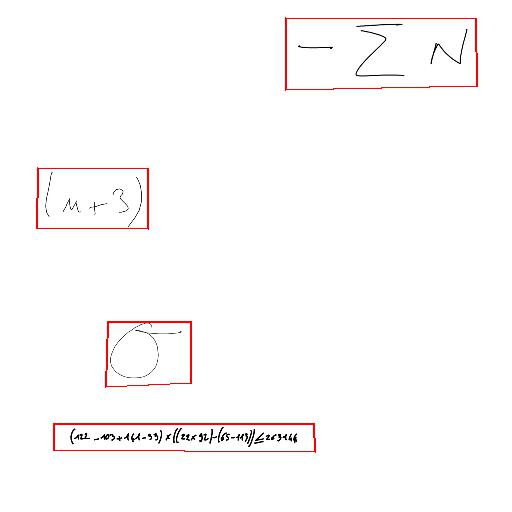 - Σ N
(μ+3)
σ
(122-103+141-33)×((22×92)-(65-113))≤263144